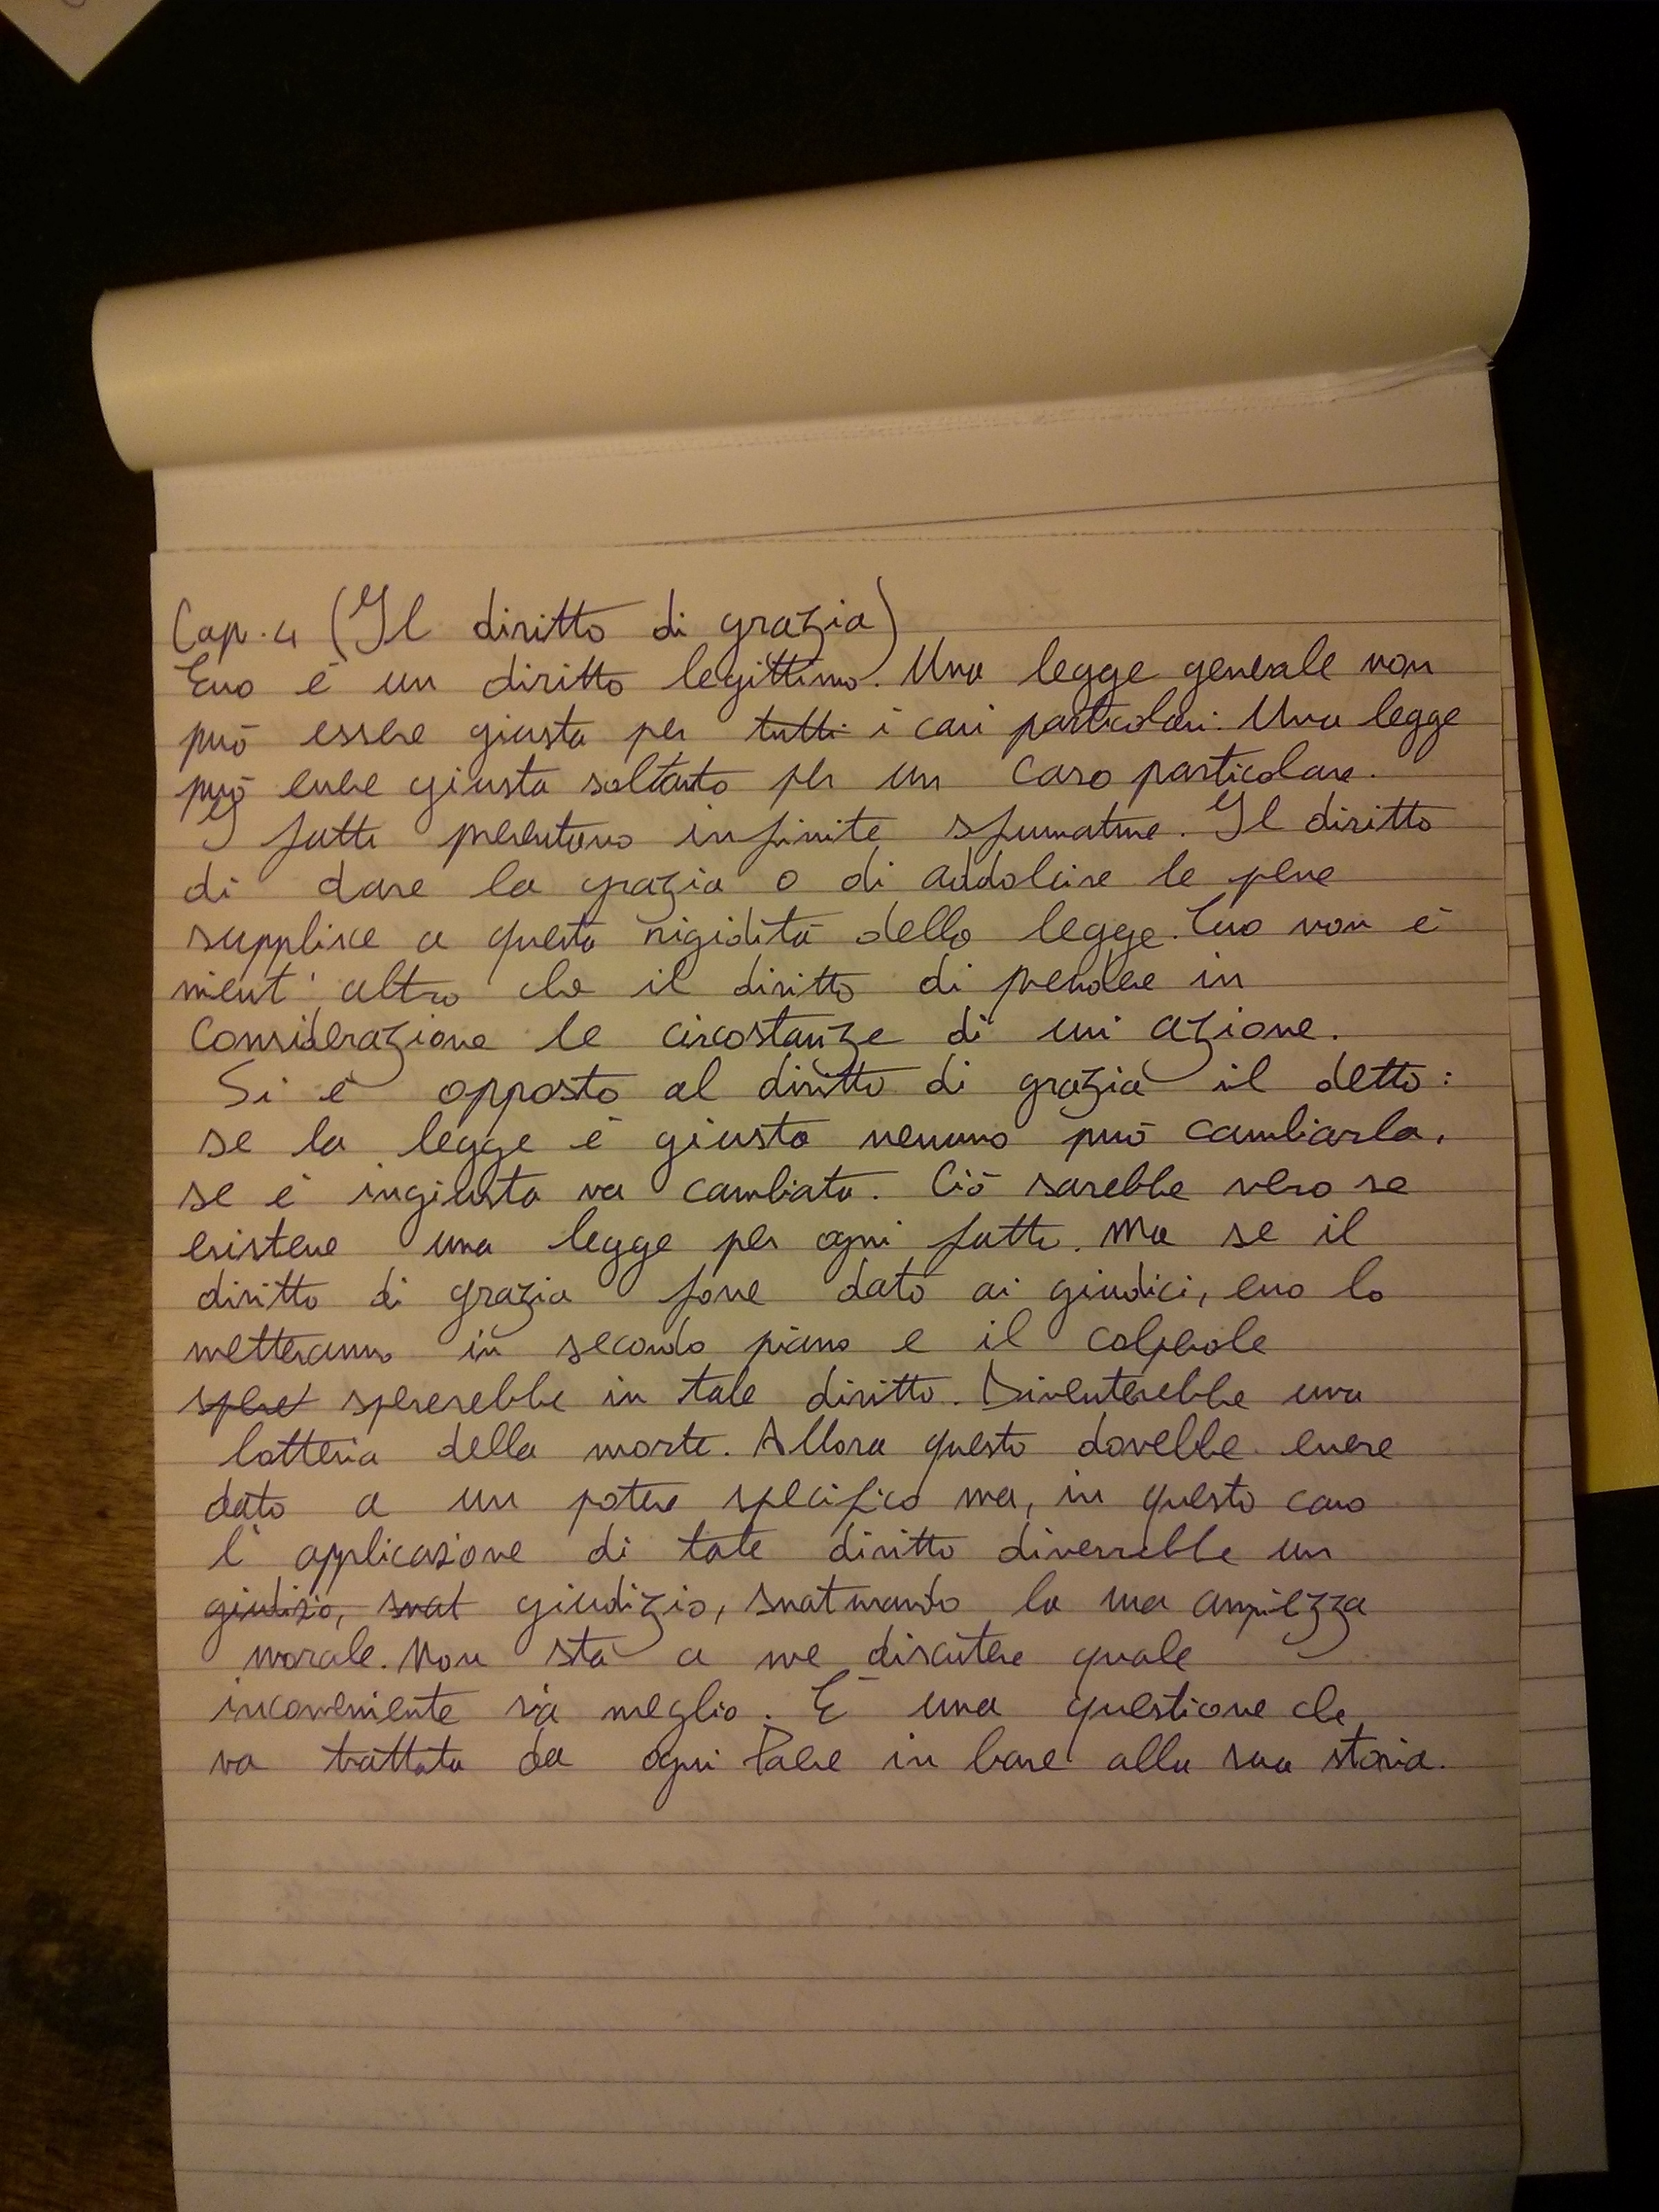 Cap. 4 (Il diritto di grazia)
Esso è un diritto legittimo. Una legge generale non
può essere giusta per tutti i casi particolari. Una legge
può essere giusta soltanto per un caso particolare.
I fatti presentano infinite sfumature. Il diritto
di dare la grazia o di addolcire le pene
supplisce a questa rigidità della legge. Esso non è
nient'altro che il diritto di prendere in
considerazione le circostanze di un'azione.
Si è opposto al diritto di grazia il detto:
se la legge è giusta nessuno può cambiarla,
se è ingiusta va cambiata. Ciò sarebbe vero se
esistesse una legge per ogni fatto. Ma se il
diritto di grazia fosse dato ai giudici, esso lo
metteranno in secondo piano e il colpevole
sperer spererebbe in tale diritto. Diventerebbe una
lotteria della morte. Allora questo dovrebbe essere
dato a un potere specifico ma, in questo caso
l'applicazione di tale diritto diverrebbe un
giudizio, snat giudizio, snaturando la sua ampiezza
morale. Non sta a me discutere quale
inconveniente sia meglio. È una questione che
va trattata da ogni Paese in base alla sua storia.